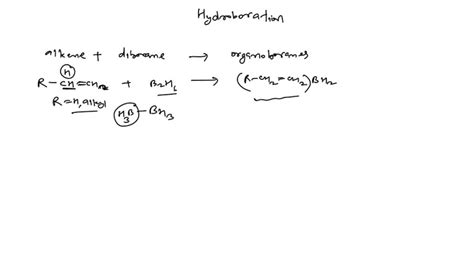 Hydroboration
alkene + diborane → organoboranes
H
R-CH=CH₂ + B₂H₆ → (R-CH₂=CH₂)BH₂
R=H, alkyl
H₃B-BH₃